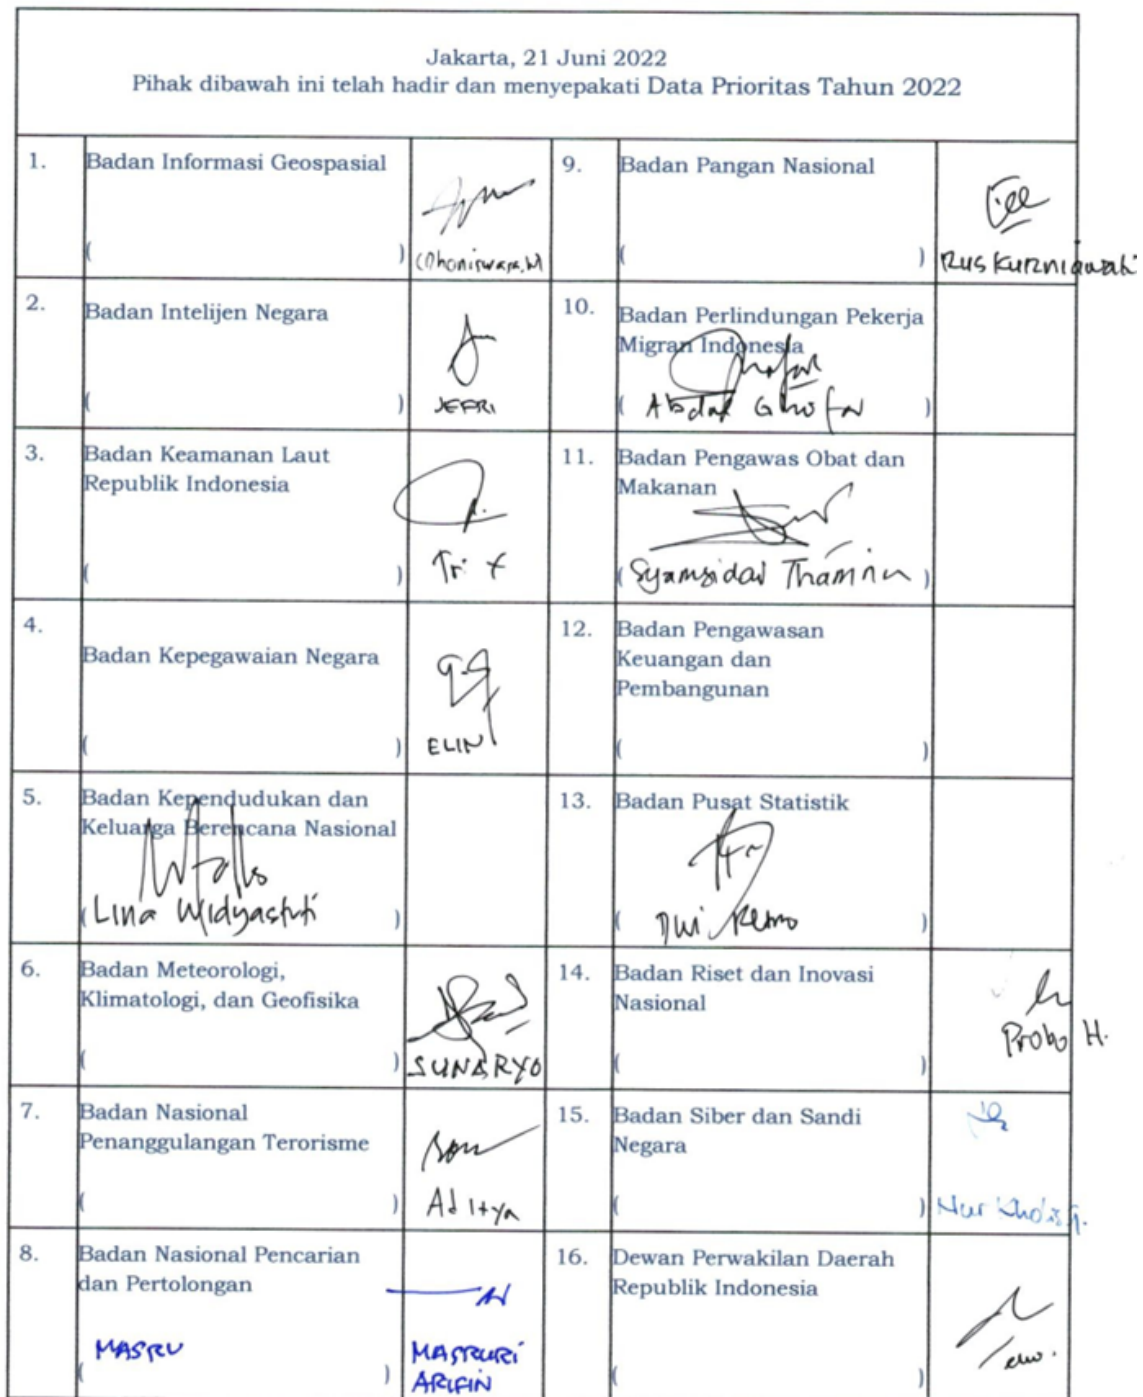 Jakarta, 21 Juni 2022
Pihak dibawah ini telah hadir dan menyepakati Data Prioritas Tahun 2022
1. Badan Informasi Geospasial
( )
9. Badan Pangan Nasional
( )
2. Badan Intelijen Negara
( ) JEFRI
10. Badan Perlindungan Pekerja
Migran Indonesia
( Abdul Ghofar )
3. Badan Keamanan Laut
Republik Indonesia
( ) Tri
11. Badan Pengawas Obat dan
Makanan
( Syamsidar Thamrin )
4.
Badan Kepegawaian Negara
( ) ELIN
12. Badan Pengawasan
Keuangan dan
Pembangunan
( )
5. Badan Kependudukan dan
Keluarga Berencana Nasional
( Lina Widyastuti )
13. Badan Pusat Statistik
( Dwi Retno )
6. Badan Meteorologi,
Klimatologi, dan Geofisika
( ) SUNARYO
14. Badan Riset dan Inovasi
Nasional
Probo H.
( )
7. Badan Nasional
Penanggulangan Terorisme
( ) Aditya
15. Badan Siber dan Sandi
Negara
( ) Nur Kholis
8. Badan Nasional Pencarian
dan Pertolongan
MASRU
( ) MASRURI
ARIFIN
16. Dewan Perwakilan Daerah
Republik Indonesia
( )